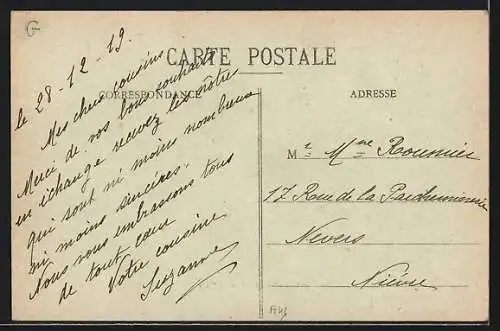 G
CARTE POSTALE
CORRESPONDANCE
ADRESSE
le 28-12-19.
Mes chers cousins
Merci de vos bons souhaits
en échange recevez les nôtre
qui sont ni moins nombreux
ni moins sincères.
Nous vous embrassons tous
de tout cœur
Votre cousine
Suzanne
Mr Mme
17 Rue de la Parcheminerie
Nevers
Nièvre